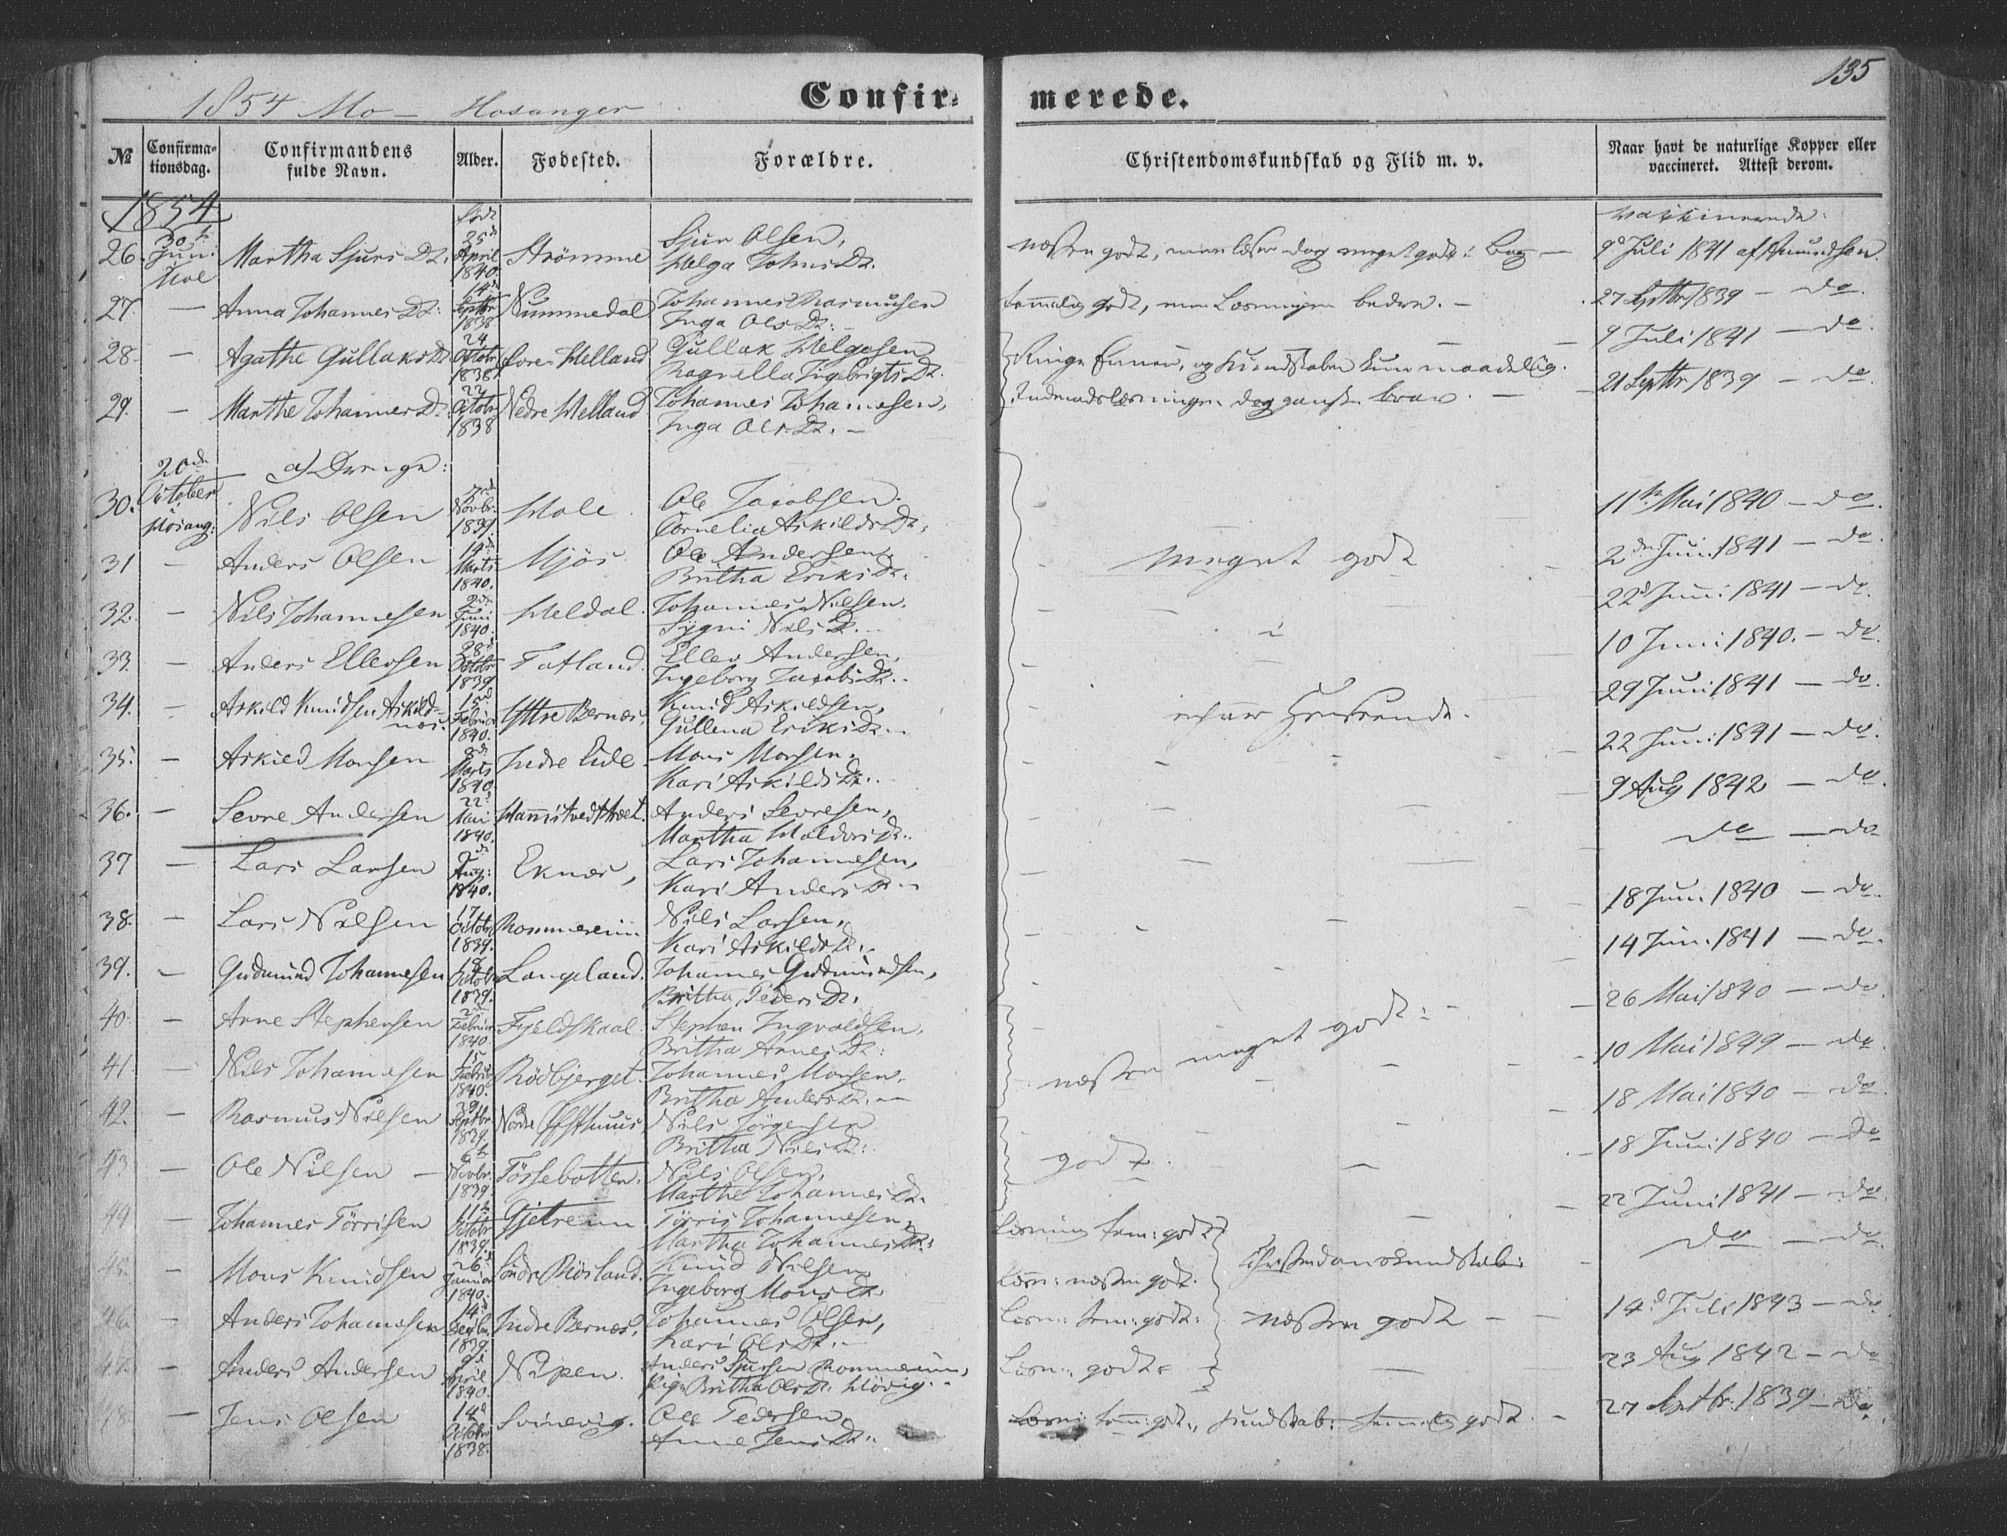 135
1854 Mo — Hosanger
Confir= merede.
№
Confirma-
tionsdag.
Confirmandens
fulde Navn.
Alder.
Fødested.
Forældre.
Christendomskundskab og Flid m. v.
Naar havt de naturlige Kopper eller
vaccineret. Attest derom.
1854
født
vakkinerede:
26. 30te Juni Moe Martha Sjurs Dt. 25de April 1840. Strømme Sjur Olsen,
Helga Johns Dt.
næsten godt, men læser dog meget godt i Bog — 9de Juli 1841 af Amundsen.
27. — Anna Johannes Dt: 14de Septbr 1838 Nummedal Johannes Rasmusen
Inga Ols Dt: —
temmelig godt, men Læsningen bedre. — 27 Septbr 1839 — do.
28. — Agathe Gullaks Dt 24 Octobr 1838 Helland Gullak Helgesen
Ingebrigts Dt.
Ringe Evner, og Kundskaben kun maadelig. 9 Juli 1841 — do.
29. — Marthe Johannes Dt. 22 Octobr 1838 Nedre Helland Johannes Johannesen,
Inga Ols Dt. —
Indenadslæsningen dog ganske brav. — 21 Septbr 1839 — do.
20de October Hosang:
a) Drenge:
30. Nils Olsen 7de Novbr. 1839 Hole. Ole Jacobsen.
Cornelia Askilds Dt.
11te Mai 1840 — do.
31 — Anders Olsen 14de Marts 1840. Mjøs. Ole Andersen,
Britha Eriks Dt.
meget godt 2den Juni 1841 — do.
32. — Nils Johannesen 9de Juni 1840. Meldal. Johannes Nilsen.
Sygni Nils Dt. —
22de Juni 1841 — do.
33. — Anders Ellevsen 28de Octobr 1839 Tatland. Ellev Andersen,
Ingeborg Jacobs Dt..
10 Juni 1840. — do.
34. — Askild Knudsen Askild-
nes. 15de Februar 1840. Yttre Bernes. Knud Askildsen,
Gullena Eriks Dt..
29 Juni 1841 — do.
35. — Askild Monsen 8de Marts 1840 Indre Eide Mons Monsen.
Kari Askilds Dt..
22 Juni 1841 — do.
36. — Sevre Andersen 22de Mai 1840. Anders Sevresen,
Martha Haldors Dt..
9 Aug 1842 — do
37 — Lars Larsen Aug: 1840. Eknes, Lars Johannesen,
Kari Anders Dt —
do — do
38. — Lars Nilsen 17 Octobr 1839. Rommereim Nils Larsen,
Kari Askilds Dt. —
18 Juni 1840 — do.
39. — Gudmund Johannesen 18 Octobr 1839. Langeland. Johannes Gudmundsen,
Britha Peders Dt.
14 Juni 1841 — do.
40. — Arne Stephensen 2de Februar 1840. Fjeldskaal. Stephen Ingvaldsen,
Britha Arnes Dt:
26 Mai 1840 — do.
41. — Nils Johannesen 15 Februar 1840. Rødbjerget. Johannes Monsen,
Britha Anders Dt. —
næsten meget godt: — 10 Mai 1849 — do.
42. — Rasmus Nilsen 29 Septbr. 1839. Nils Jörgensen
Britha Nils Dt:
18 Mai 1840 — do.
43 — Ole Nilsen — 6te Novbr. 1839. Fossebotten. Nils Olsen,
Marthe Johannes Dt.
godt. 18 Juni 1840 — do
44 — Johannes Törrisen 11te Octobr 1839. Gjetreim Törris Johannesen,
Martha Johannes Dt:
Læsning tem: godt 22 Juni 1841 — do.
45. — Mons Knudsen 26de Januar 1840. Søndre Røsland. Knud Nilsen
Ingeborg Mons Dt.
Læsn: næsten godt. Christendomskundskab: do — do.
46. — Anders Johannesen 14de Decbr. 1839. Indre Bernes, Johannes Olsen,
Kari Ols Dt. —
Læsn: tem: godt: næsten godt — — 14de Juli 1843 — do
47. — Anders Andersen 9de April 1840. Nipen. Anders Sjursen Rommereim,
Pige Britha Ols Dt. Hövig. —
Læsn: godt = 23 Aug 1842 — do
48. — Jens Olsen 14de Octobr 1838. Svinevig. Ole Pedersen
Anne Jens Dt.
Læsn: tem: godt, Kundskab: temmelig godt. — 27 Septbr: 1839 — do.